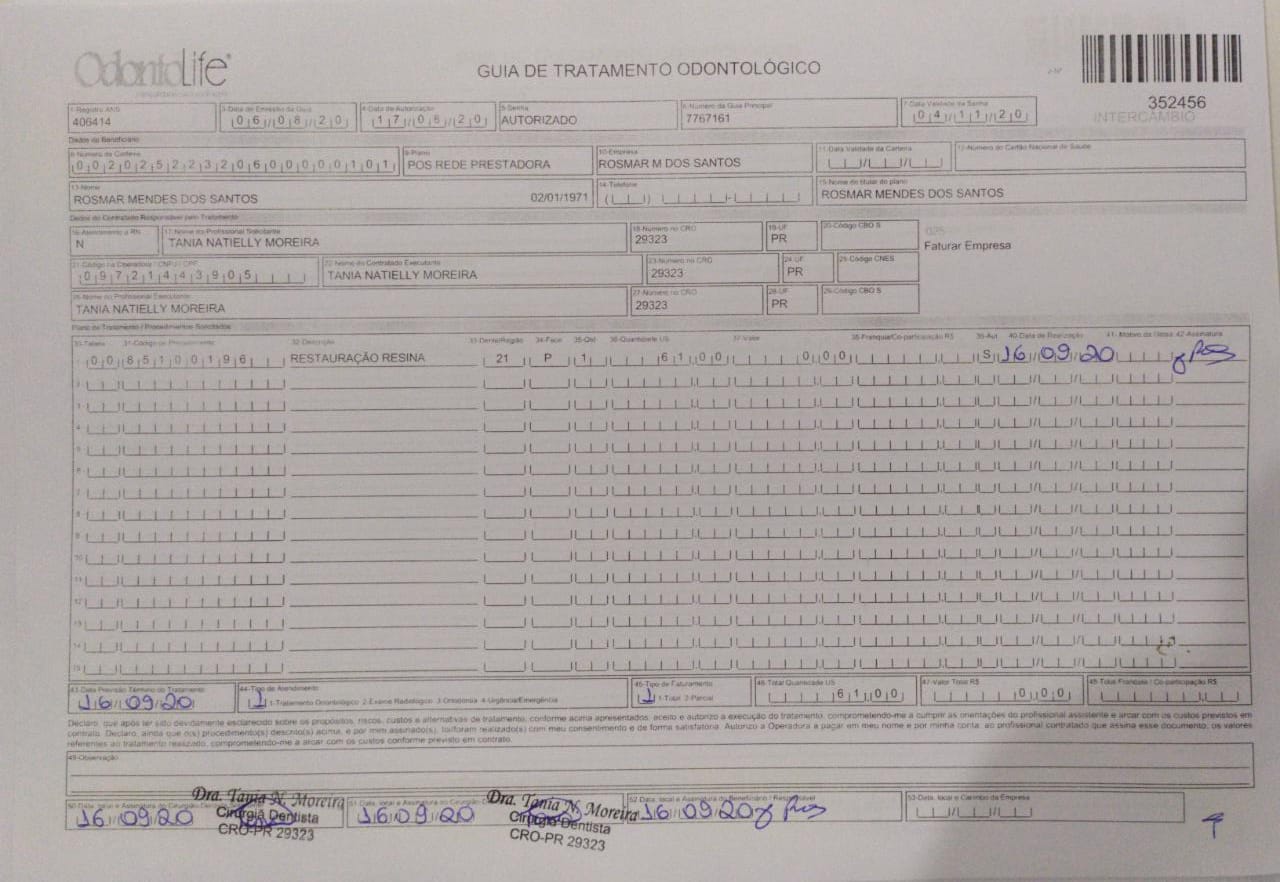 OdontoLife
GUIA DE TRATAMENTO ODONTOLÓGICO
352456
INTERCÂMBIO
1-Registro ANS 3-Data de Emissão da Guia 4-Data de Autorização 5-Senha 6-Número da Guia Principal 7-Data Validade da Senha
406414 06/08/20 17/05/20 AUTORIZADO 7767161 04/11/20
Dados do Beneficiário
8-Número da Carteira 9-Plano 10-Empresa 11-Data Validade da Carteira 12-Número do Cartão Nacional de Saúde
00202522320600000101 POS REDE PRESTADORA ROSMAR M DOS SANTOS
13-Nome 14-Telefone 15-Nome do titular do plano
ROSMAR MENDES DOS SANTOS 02/01/1971 ROSMAR MENDES DOS SANTOS
Dados do Contratado Responsável pelo Tratamento
16-Atendimento a RN 17-Nome do Profissional Solicitante 18-Número no CRO 19-UF 20-Código CBO S 025
N TANIA NATIELLY MOREIRA 29323 PR Faturar Empresa
21-Código na Operadora / CNPJ / CPF 22-Nome do Contratado Executante 23-Número no CRO 24-UF 25-Código CNES
09721443905 TANIA NATIELLY MOREIRA 29323 PR
26-Nome do Profissional Executante 27-Número no CRO 28-UF 29-Código CBO S
TANIA NATIELLY MOREIRA 29323 PR
Plano de Tratamento / Procedimentos Solicitados
30-Tabela 31-Código do Procedimento 32-Descrição 33-Dente/Região 34-Face 35-Qtd 36-Quantidade US 37-Valor 38-Franquia/Co-participação R$ 39-Aut 40-Data de Realização 41- Motivo da Glosa 42-Assinatura
0085100196 RESTAURAÇÃO RESINA 21 P 1 6100 000 S 16/09/20
2
3
4
5
6
7
8
9
10
11
12
13
14
15
43-Data Previsão Término do Tratamento 44-Tipo de Atendimento 45-Tipo de Faturamento 46-Total Quantidade US 47-Valor Total R$ 48-Total Franquia / Co-participação R$
16/09/20 1 1-Tratamento Odontológico 2-Exame Radiológico 3-Ortodontia 4-Urgência/Emergência 1 1-Total 2-Parcial 6100 000
Declaro, que após ter sido devidamente esclarecido sobre os propósitos, riscos, custos e alternativas de tratamento, conforme acima apresentados, aceito e autorizo a execução do tratamento, comprometendo-me a cumprir as orientações do profissional assistente e arcar com os custos previstos em
contrato. Declaro, ainda que o(s) procedimento(s) descrito(s) acima, e por mim assinado(s), foi/foram realizado(s) com meu consentimento e de forma satisfatória. Autorizo a Operadora a pagar em meu nome e por minha conta, ao profissional contratado que assina esse documento, os valores
referentes ao tratamento realizado, comprometendo-me a arcar com os custos conforme previsto em contrato.
49-Observação
50-Data, local e Assinatura do Cirurgião-Dentista 51-Data, local e Assinatura do Cirurgião-D 52-Data, local e Assinatura do Beneficiário / Responsável 53-Data, local e Carimbo da Empresa
16/09/20 Dra. Tania N. Moreira 16/09/20 Dra. Tania N. Moreira 16/09/20
Cirurgiã Dentista Cirurgiã Dentista
CRO-PR 29323 CRO-PR 29323